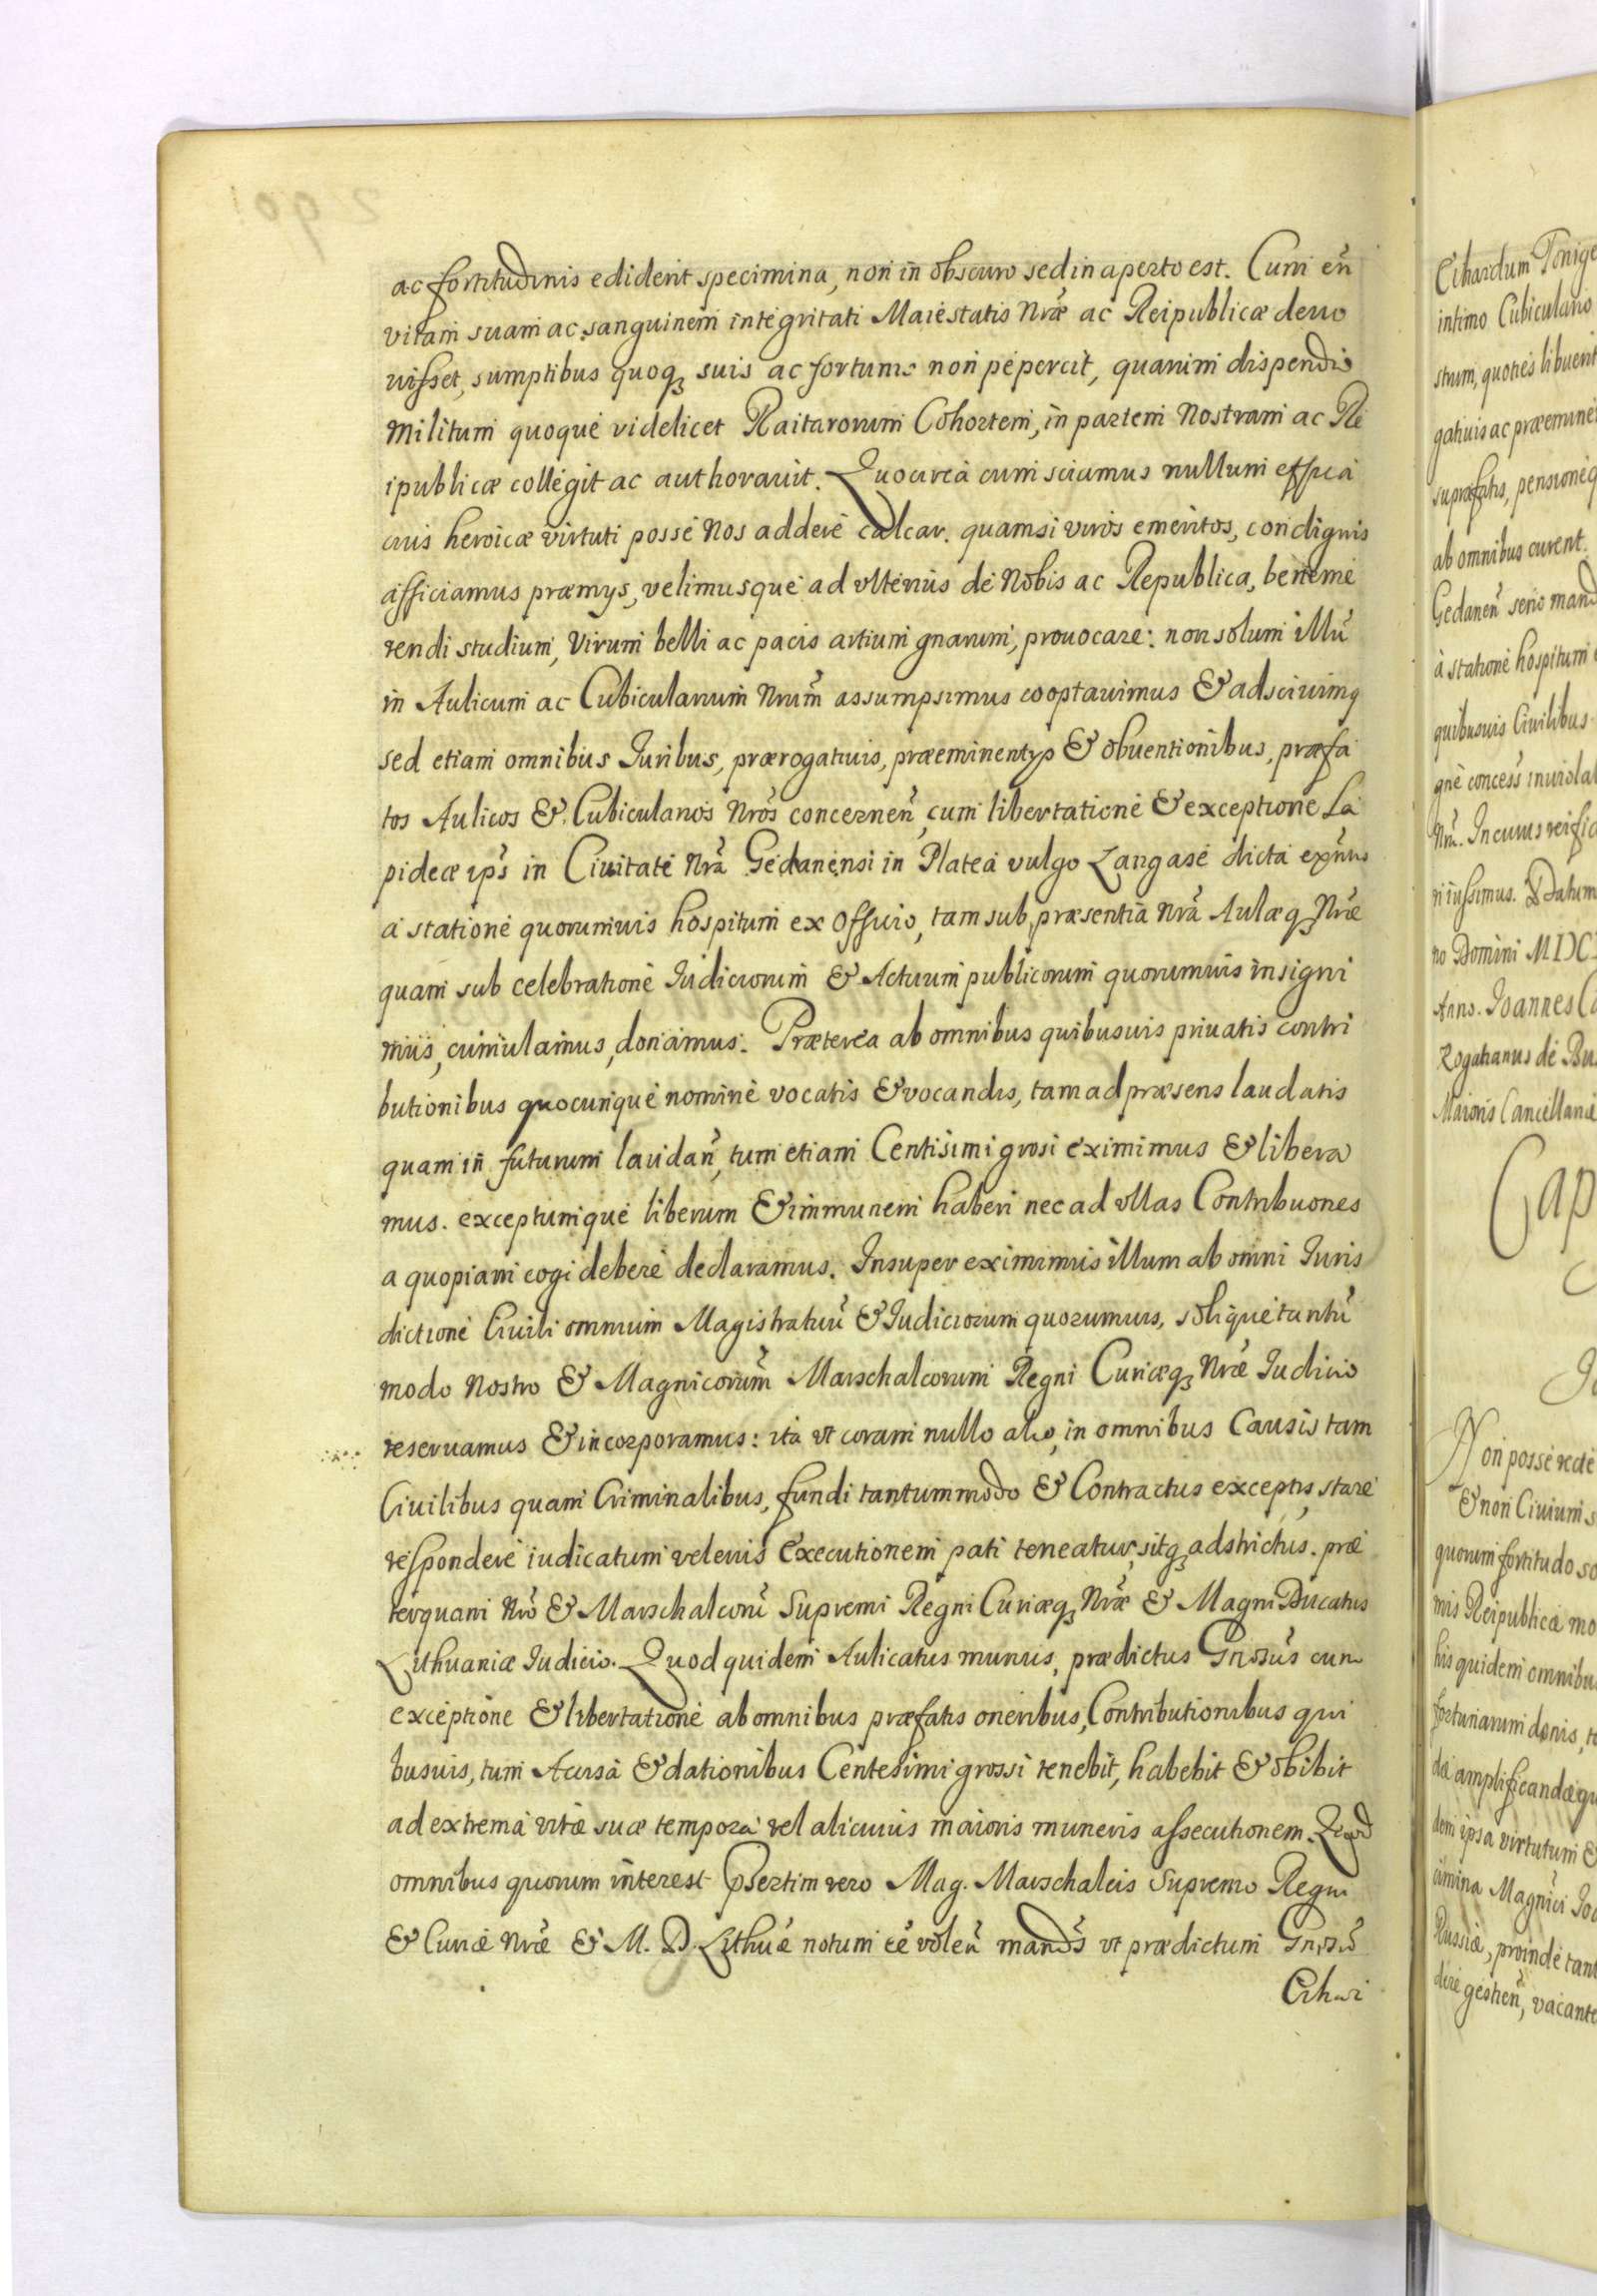 ac fortitudinis ediderit specimina, non in obscuro sed in aperto est. Cum eñ
vitam suam ac sanguinem integritati Maiestatis Nr̃æ ac Reipublicæ deuo
uisset, sumptibus quoq suis ac fortunis non pepercit, quarum dispendio
Militum quoque videlicet Raitarorum Cohortem, in partem Nostram ac Re
ipublicæ collegit ac authorauit. Quocirca cum sciamus nullum effica
cius heroicæ virtuti posse Nos addere calcar. quam si viros emeritos, condignis
afficiamus præmys, velimusque ad vlterius de Nobis ac Republica, beneme
rendi studium, Virum belli ac pacis artium gnarum, prouocare: non solum illũ
in Aulicum ac Cubicularium Nrum̃ assumpsimus cooptauimus & adsciuimq
sed etiam omnibus Iuribus, prærogatiuis, præeminentys & obuentionibus, præfa
tos Aulicos & Cubicularios Nr̃os concerneñ, cum libertatione & exceptione La
pideæ ips̃ in Ciuitate Nr̃a Gedanensi in Platea vulgo Langase dicta
a statione quorumuis hospitum ex Officio, tam sub præsentia Nr̃a Aulæq Nr̃æ
quam sub celebratione Iudiciorum & Actuum publicorum quorumuis insigni
mus, cumulamus, donamus. Præterea ab omnibus quibusuis priuatis contri
butionibus quocunque nomine vocatis & vocandis, tam ad præsens laudatis
quam in futurum laudañ, tum etiam Centisimi grosi eximimus & libera
mus. exceptumque liberum & immunem haberi nec ad vllas Contribuones
a quopiam cogi debere declaramus. Insuper eximimus illum ab omni Iuris
dictione Ciuili omnium Magistratuũ & Iudiciorum quorumuis, solique tantũ
modo Nostro & Magnicorum̃ Marschalcorum Regni Curiæq Nr̃æ Iudicio
reseruamus & incorporamus: ita vt coram nullo alio, in omnibus Causis tam
Ciuilibus quam Criminalibus, fundi tantummodo & Contractus exceptis, stare
respondere iudicatum vel eius Executionem pati teneatur, sitq adstrictus. præ
terquam Nr̃o & Marschalcorũ Supremi Regni Curiæq Nr̃æ & Magni Ducatus
Lithuaniæ Iudicio. Quod quidem Aulicatus munus, prædictus Gñosus cum
exceptione & libertatione ab omnibus præfatis oneribus, Contributionibus qui
busuis, tum Accisa & dationibus Centesimi grossi tenebit, habebit & obibit
ad extrema vitæ suæ tempora vel alicuius maioris muneris assecutionem. Quod
omnibus quorum interest Psertim vero Mag. Marschalcis Supremo Regni
& Curiæ Nr̃æ & M. D. Lithuæ notum eẽ voleñ mands̃ vt prædictum Gñosũ
Erhar

Erhardum Tonige
intimo Cubiculario
strum, quoties libuerit
gatiuis ac præemine
supræfatis, pensioneq
ab omnibus curent.
Gedaneñ serio mand
à statione hospitum
quibusuis Ciuilibus
gne concess̃ inuiolab
Nrã. In cuius rei fid
ri iussimus. Datum
no Domini MDC
Anno. Joannes Ca
Rogatianus de Bu
Maioris Cancellariæ
Cap
Non posse rede
& non Ciuium s
quorum fortitudo so
mis Reipublicæ mo
his quidem omnibu
fortunarum donis, t
dæ amplificandæqu
dem ipsa virtutum &
cimina Magnici Joa
Russiæ, proinde tant
dere gestieñ, vacante